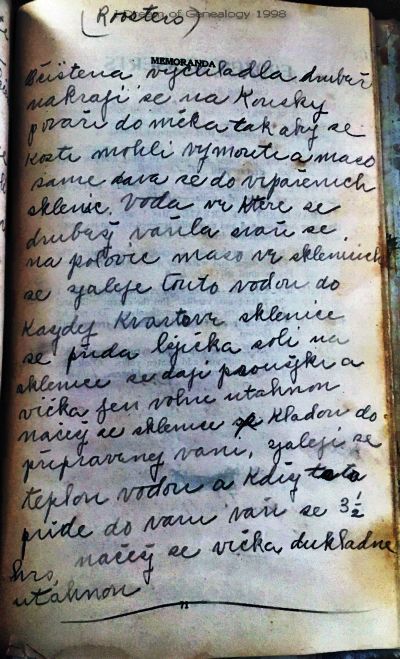 (Roosters)
of Genealogy 1998
MEMORANDA
Čištena vychladla drubež
nakrají se na Kousky
povaří do měka tak aby se
Kosti mohli vymouti a maso
same dava se do vypařenich
sklenic. Voda ve Ktere se
drubež vařila svaři se
na polovic maso ve sklenicich
se zaleje touto vodou do
Kazdej Kvartove sklenice
se přida lžička soli na
sklenice se dají proužky a
vička jen volne utahnou
načež se sklenice Kladou do
připravenej vani, zaleji se
teplou vodou a Když tato
pride do varu vaři se 3½
hrs, načež se vička dukladne
utáhnou
71